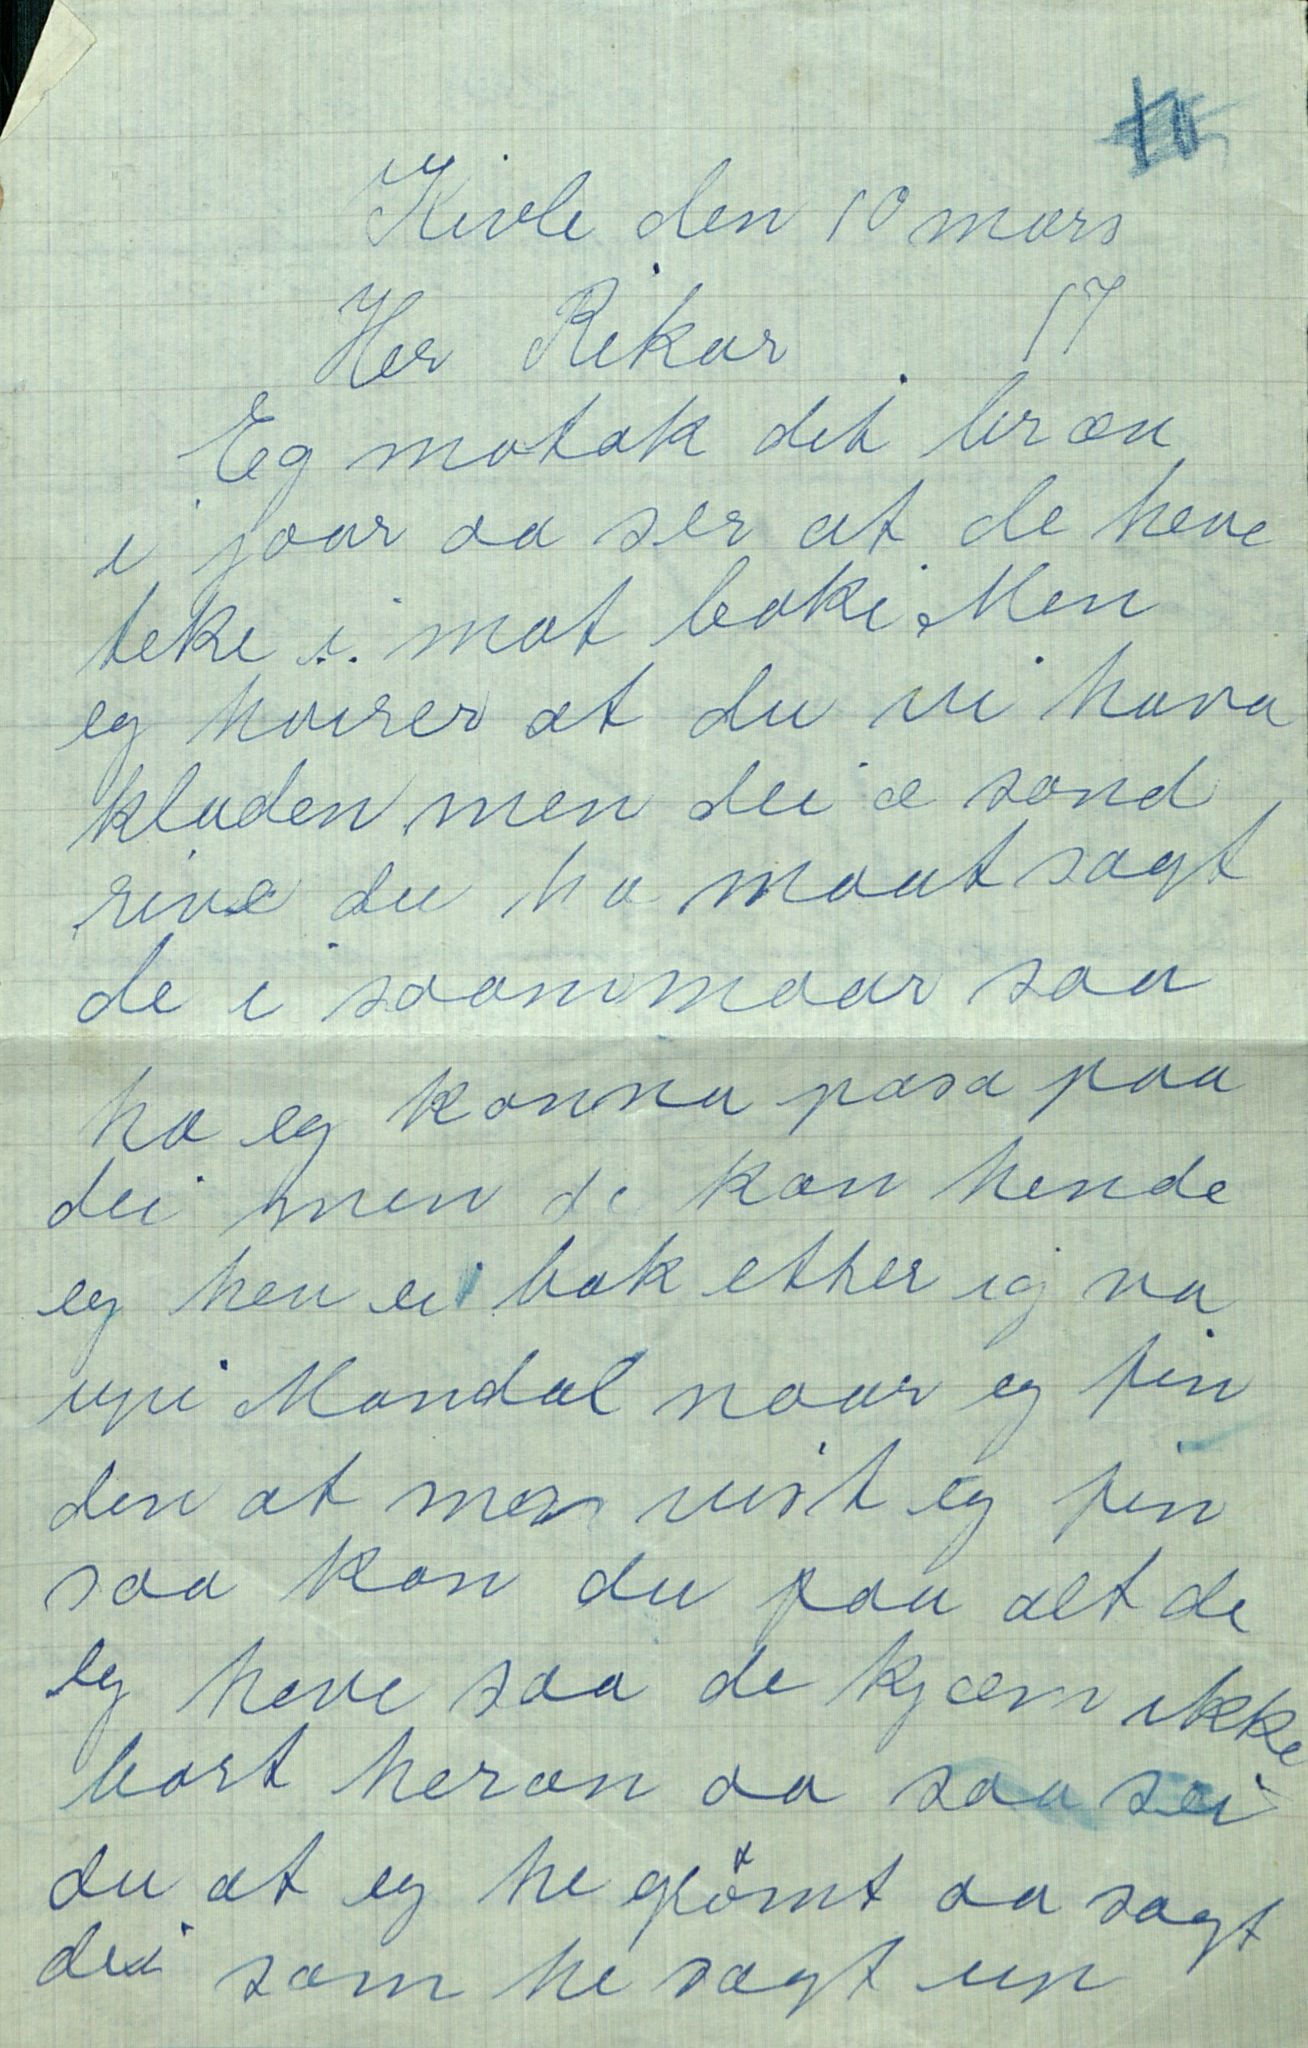 Kivle den 10 mars
Her Rikar 17
Eg motok dit bræu
i jaar aa ser at de heve
teke i mot boki Men
eg høirer at du vi hava
kladen men dei æ sond
rive du ha maat sagt
de i saammaar saa
ha eg konna pasa paa
dei men de kan hende
eg heu ei bok etter ig va
upi Mandal naar eg fin
den at men vist eg fin
saa kan du faa alt de
eg heve saa de kjæm ikke
bort heran aa saa sei
du at eg he glömt aa sagt
dei som he sagt up